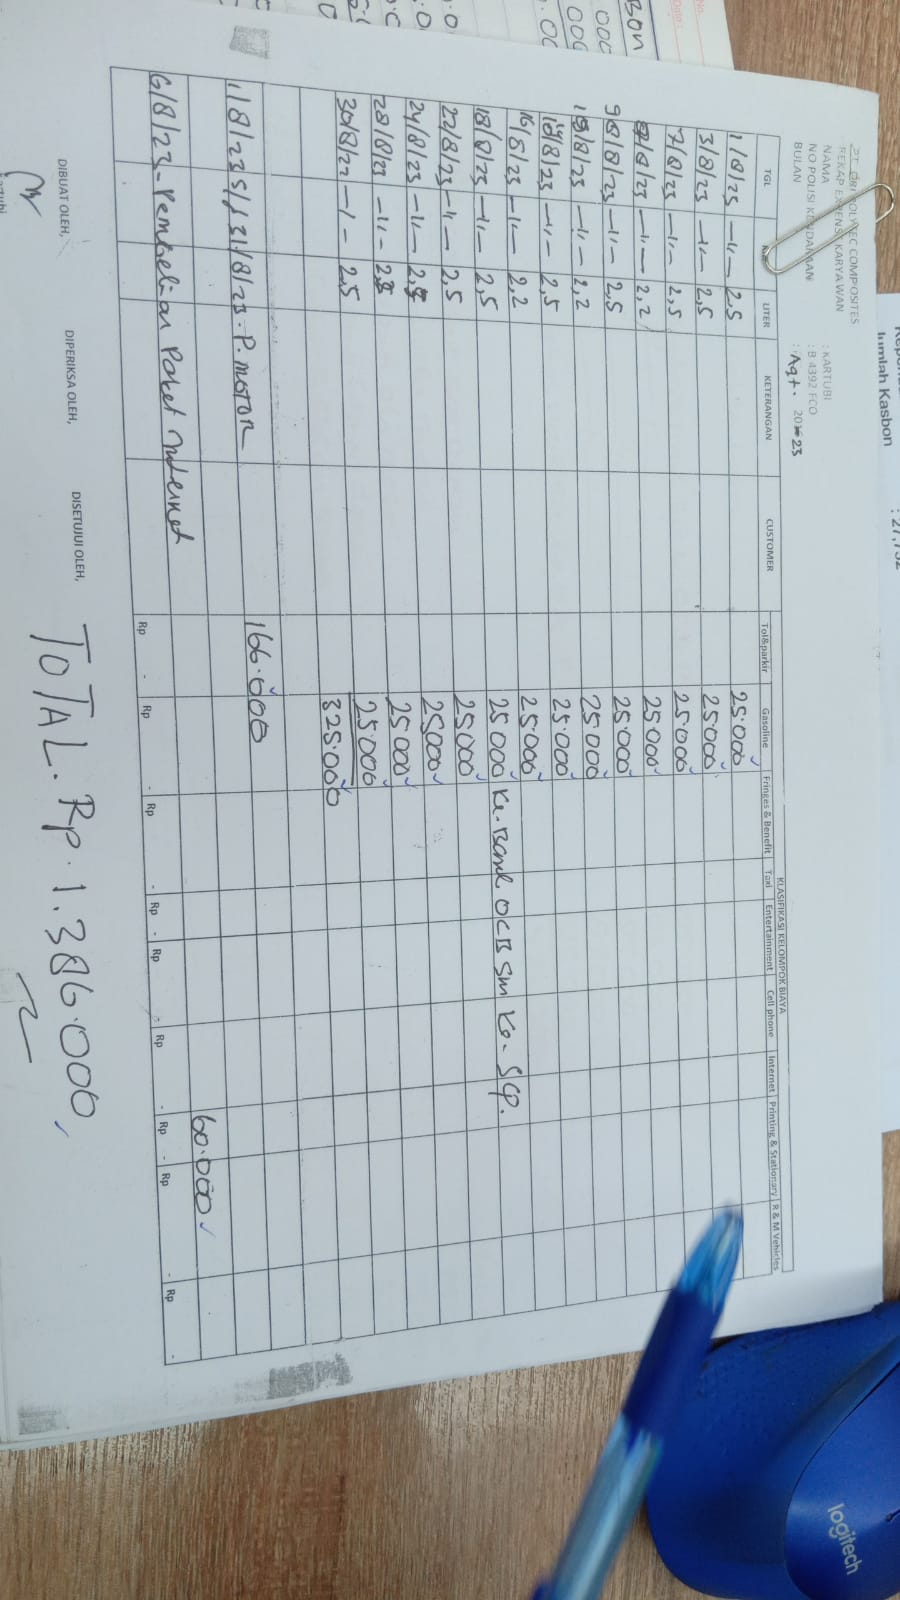 PT. DBI POLYTEC COMPOSITES
REKAP EXPENSE KARYAWAN
NAMA : KARTUBI
NO POLISI KENDARAAN : B 4392 FCO
BULAN : Agt. 2023
KLASIFIKASI KELOMPOK BIAYA
TGL LITER KETERANGAN CUSTOMER Tol&parkir Gasoline Fringes & Benefit Taxi Entertainment Cell phone Internet Printing & Stationary R & M Vehicles
1/8/23 -11- 2,5 25.000
3/8/23 -11- 2,5 25.000
7/8/23 -11- 2,5 25.000
/8/23 -11- 2,2 25.000
98/8/23 -11- 2,5 25.000
/8/23 -11- 2,2 25.000
/8/23 -11- 2,5 25.000
16/8/23 -11- 2,2 25.000
18/8/23 -11- 2,5 25.000 Ke. Bank OCB Sm Ke-
22/8/23 -11- 2,5 25.000
24/8/23 -11- 2,5 25.000
28/8/23 -11- 25.000
30/8/22 -1- 2,5 25.000
325.000
1/8/23 S/d 31/8/23. P. MOTOR 166.000
6/8/23 - Pembelian Paket internet 60.000
Rp - Rp - Rp - Rp - Rp - Rp - Rp - Rp - Rp -
DIBUAT OLEH, DIPERIKSA OLEH, DISETUJUI OLEH,
TOTAL. Rp. 1.386.000,
Jumlah Kasbon
logitech